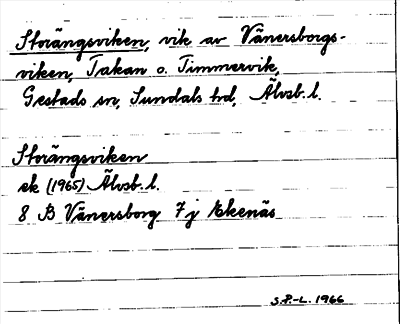 Storängsviken, vik av Vänersborgs-
viken, Takan o. Timmervik,
Gestads sn, Sundals hd, Älvsb. l.
Storängsviken
ek (1965) Älvsb. l.
8 B Vänersborg 7 j Ekenäs
S.P.-L. 1966